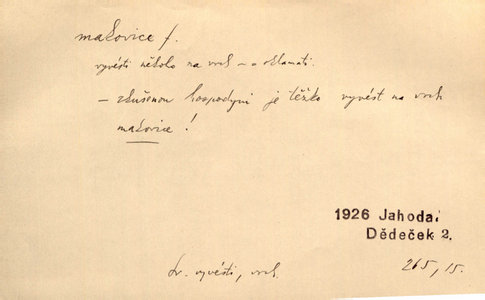 makovice f.
vyvésti někoho na vrch – oklamati.
– zkušenou hospodyni je těžko vyvést na vrch
makovice!
1926 Jahoda:
Dědeček 2.
265, 15.
Sr. vyvésti, vrch.